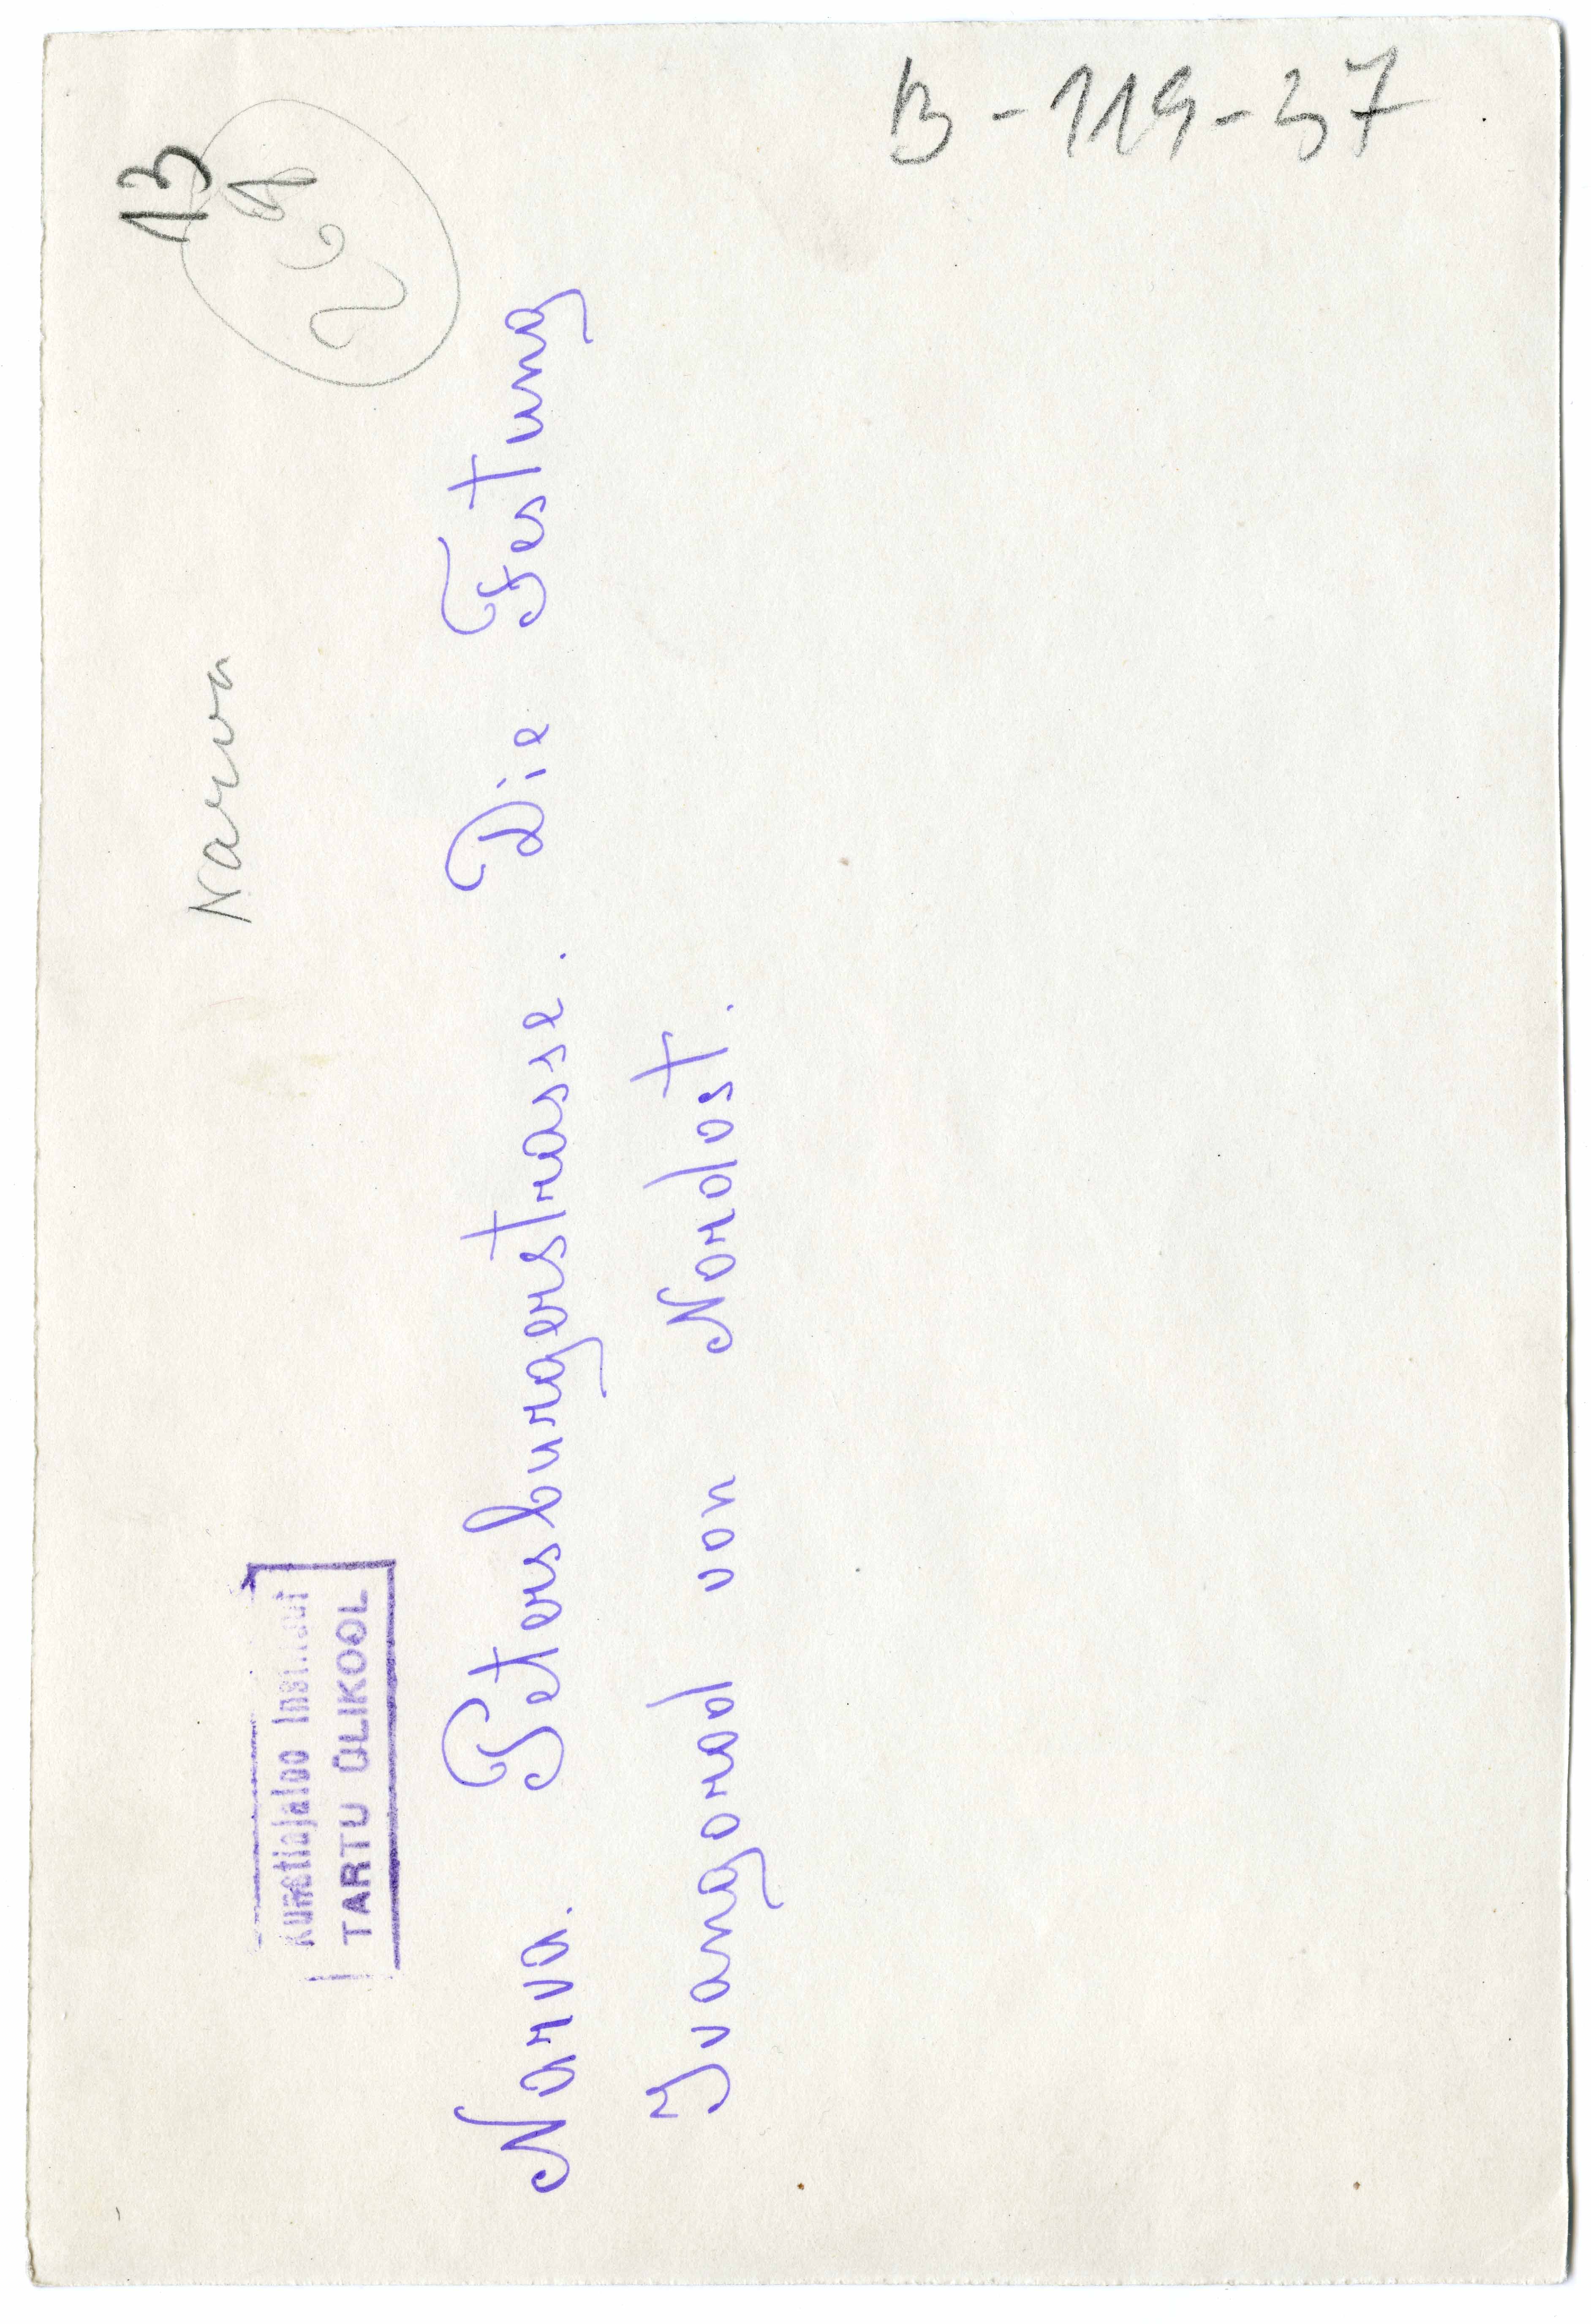 B-119-37
13
Narva
Kunstiajaloo Instituut
TARTU ÜLIKOOL
Narva. Petersburgerstrasse. Die Festung
Ivangorod von Nordost.